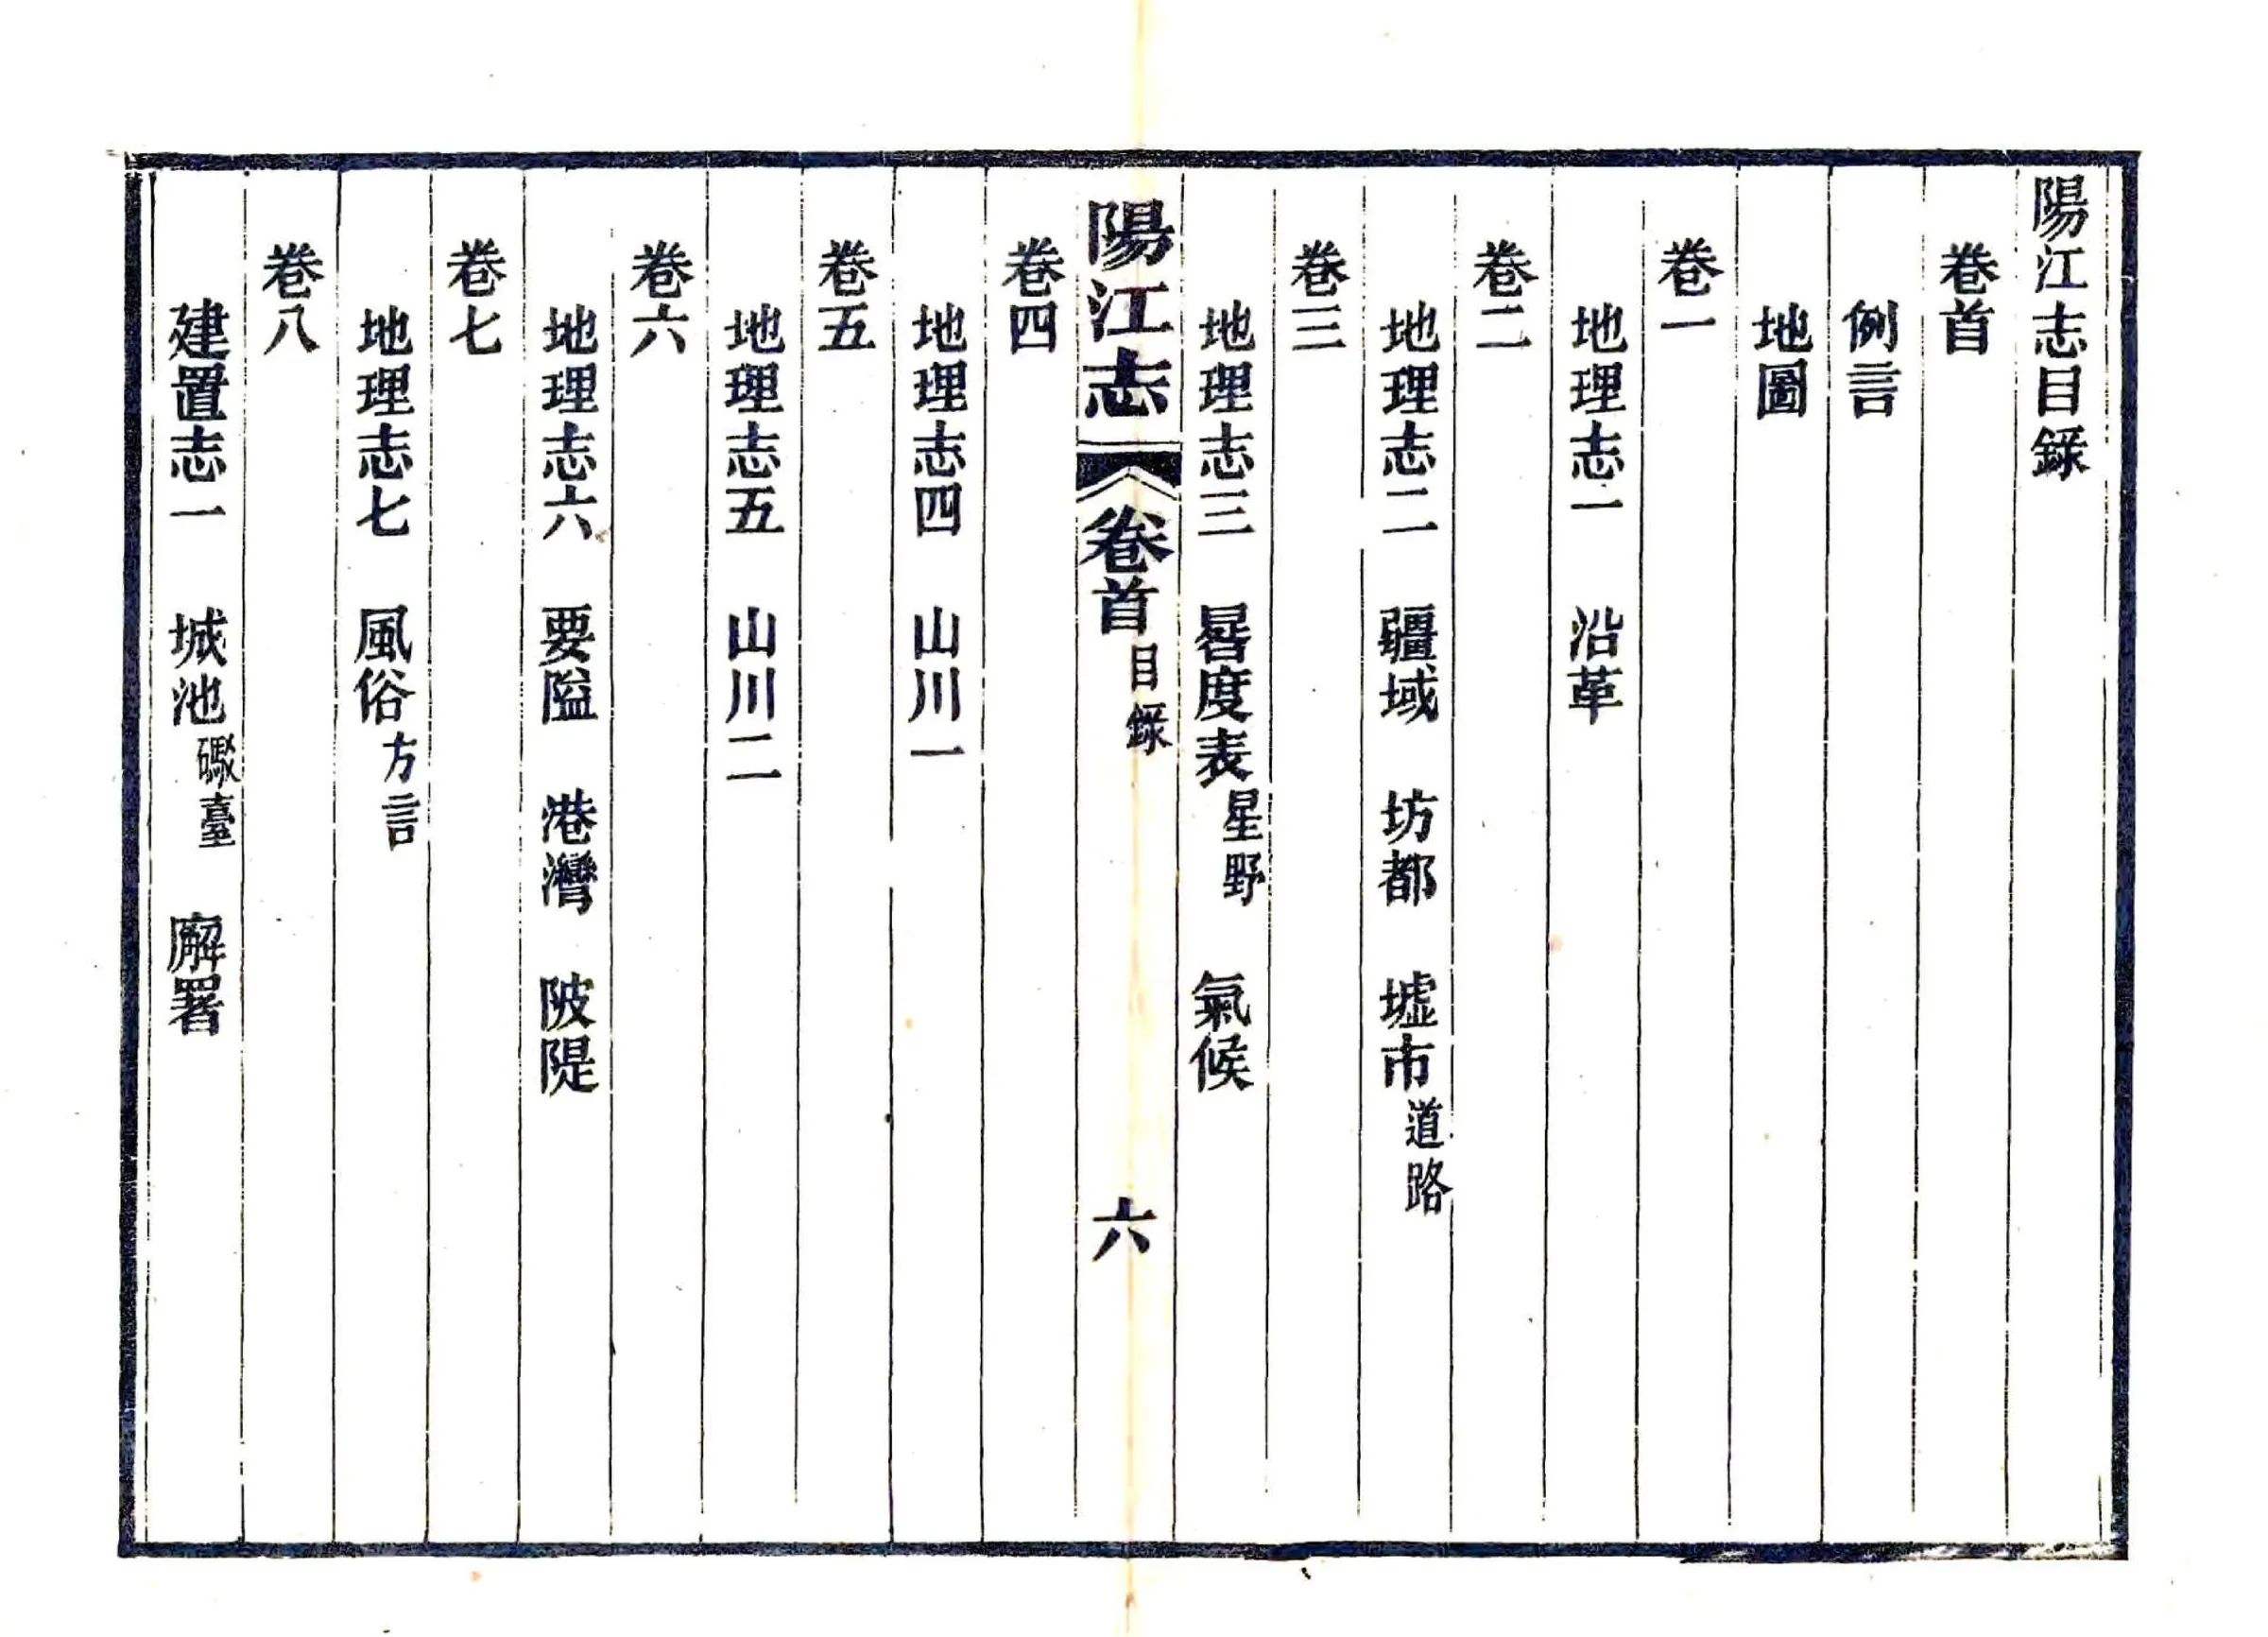 陽江志目録
卷首
例言
地圖
卷一
地理志一　沿革
卷二
地理志二　疆域　坊都　墟市道路
卷三
地理志三　晷度表星野　氣候
陽江志　卷首目録　六
卷四
地理志四　山川一
卷五
地理志五　山川二
卷六
地理志六　要隘　港灣　陂隄
卷七
地理志七　風俗方言
卷八
建置志一　城池礮臺　廨署